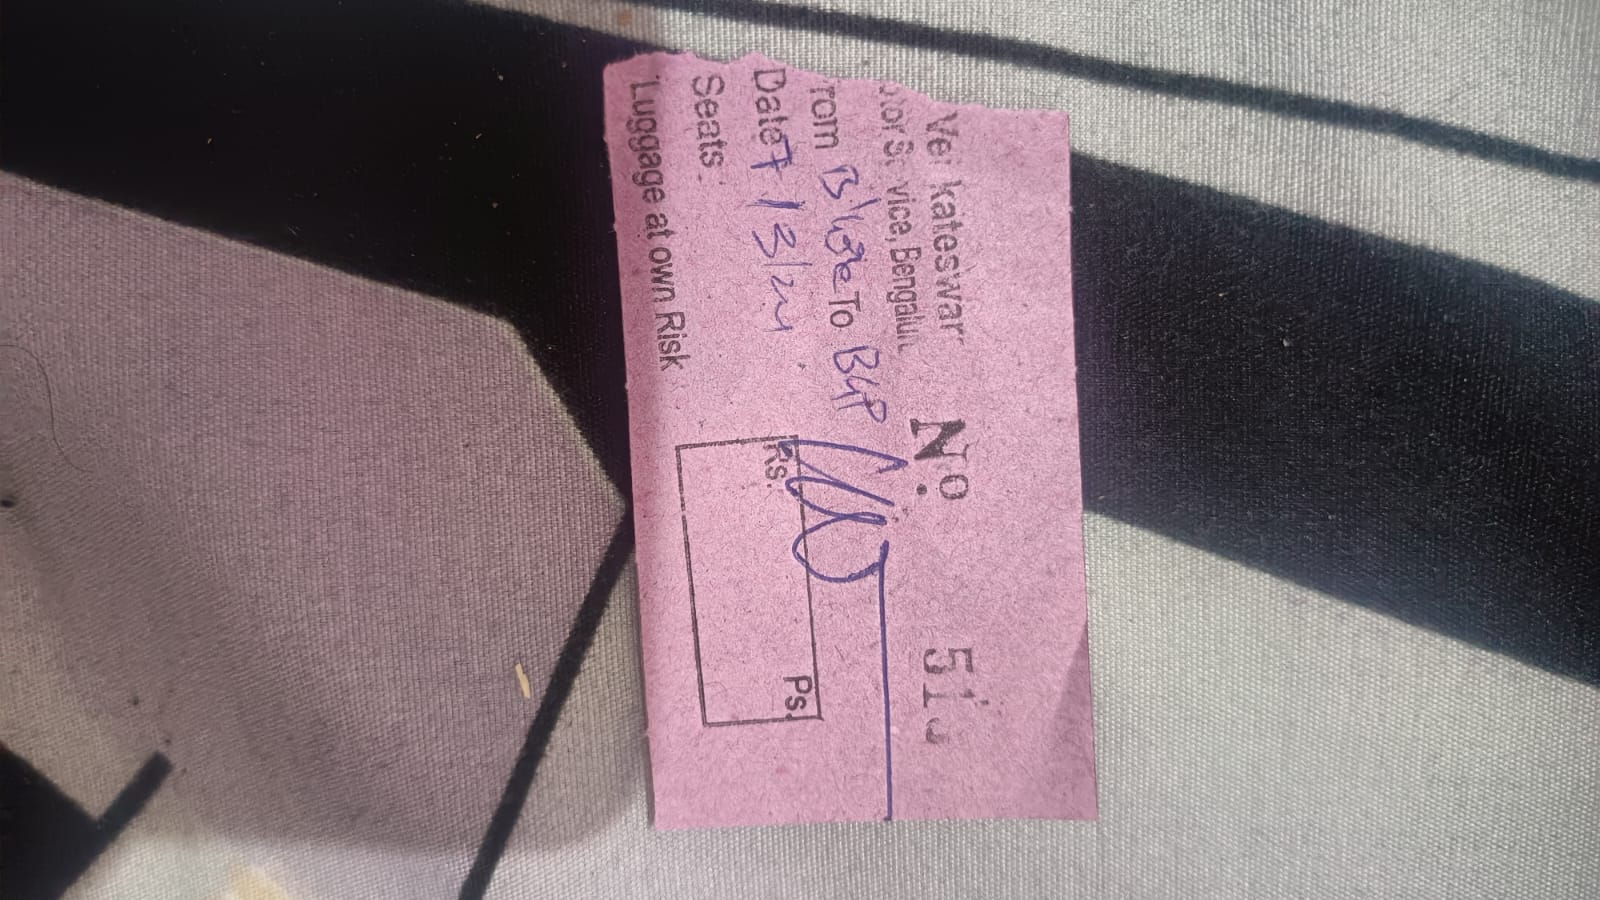 Venkateswar
Motor Service, Bengaluru
No 513
From B'lore To BGP
Date 7/3/24
Seats:
Luggage at own Risk
Rs. Ps.